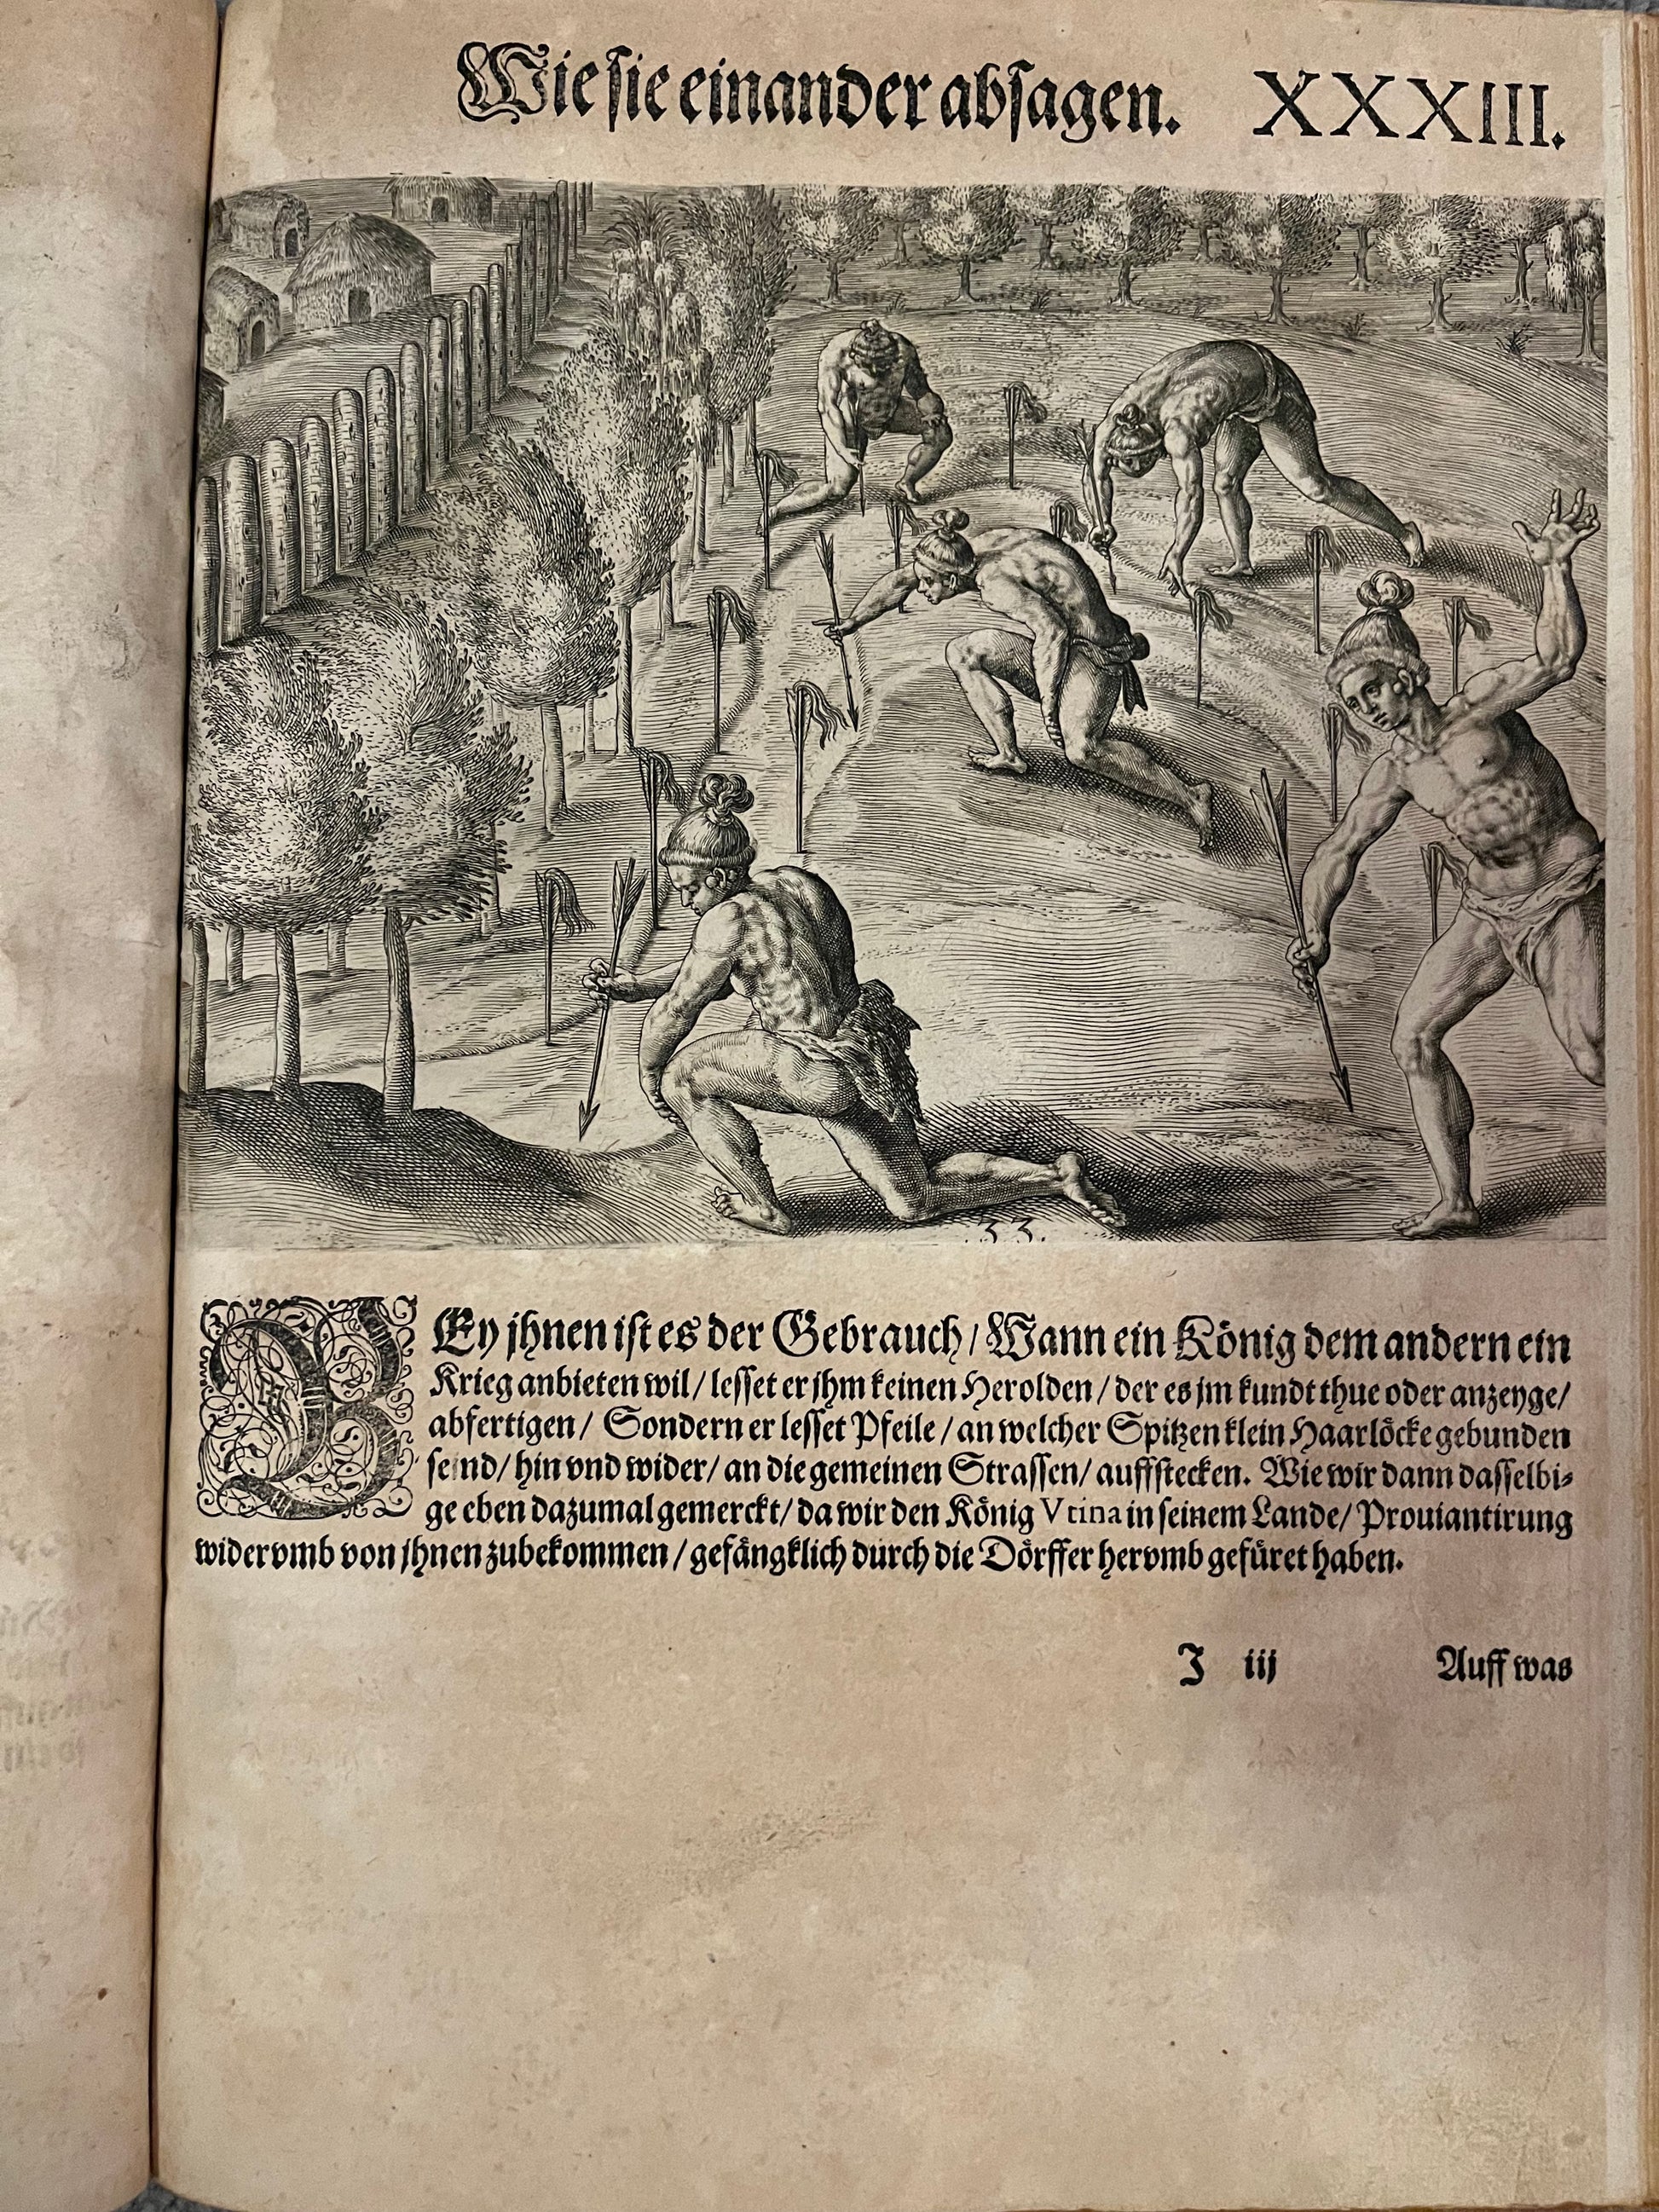 Wie sie einander absagen. XXXIII.
33.
BEy jhnen ist es der Gebrauch / Wann ein König dem andern ein
Krieg anbieten wil / lesset er jhm keinen Herolden / der es jm kundt thue oder anzeyge /
abfertigen / Sondern er lesset Pfeile / an welcher Spitzen klein Haarlöcke gebunden
seind / hin vnd wider / an die gemeinen Strassen / auffstecken. Wie wir dann dasselbi-
ge eben dazumal gemerckt / da wir den König Vtina in seinem Lande / Prouiantirung
widervmb von jhnen zubekommen / gefängklich durch die Dörffer hervmb gefüret haben.
J iij Auff was